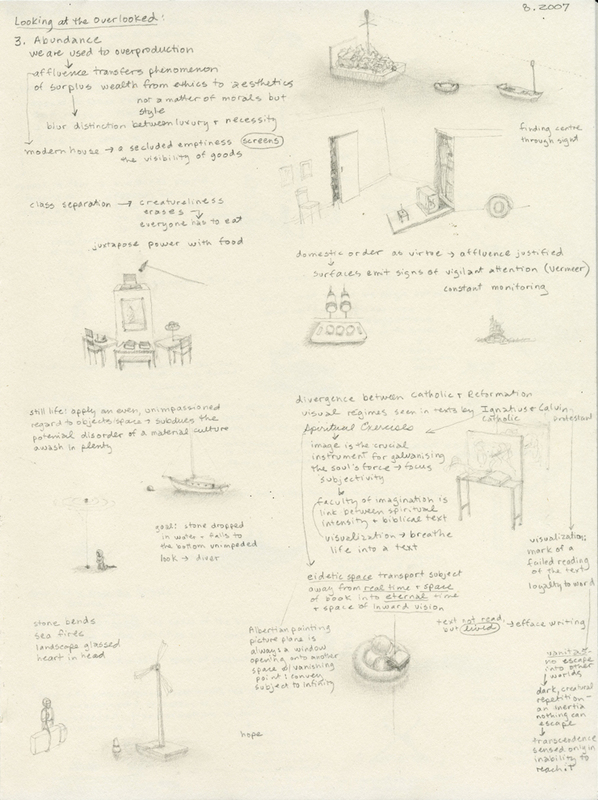 Looking at the Overlooked:
8.2007
3. Abundance
we are used to overproduction
affluence transfers phenomenon
of surplus wealth from ethics to aesthetics
not a matter of morals but
style
blur distinction between luxury + necessity
modern house → a secluded emptiness screens
the visibility of goods
finding centre
through sight
class separation → creatureliness
erases →
everyone has to eat
juxtapose power with food
domestic order as virtue → affluence justified
surfaces emit signs of vigilant attention (Vermeer)
constant monitoring
still life: apply an even, unimpassioned
regard to objects/space + subdues the
potential disorder of a material culture
awash in plenty
goal: stone dropped
in water + falls to
the bottom unimpeded
look → diver
divergence between Catholic + Reformation
visual regimes seen in texts by Ignatius + Calvin
Catholic
protestant
Spiritual Exercises
image is the crucial
instrument for galvanising
the soul's force → focus
subjectivity
faculty of imagination is
link between spiritual
intensity + biblical text
visualization → breathe
life into a text
eidetic space transport subject
away from real time + space
of book into eternal time
+ space of inward vision
text not read,
but lived → efface writing
visualization:
mark of a
failed reading
of the text
loyalty to word
vanitas-
no escape
into other
worlds
dark, creatural
repetition-
an inertia
nothing can
escape
transcendence
sensed only in
inability to
reach it
stone bends
sea fires
landscape glassed
heart in head
Albertian painting
picture plane is
always a window
opening onto another
space w/ vanishing
point: convey
subject to infinity
hope